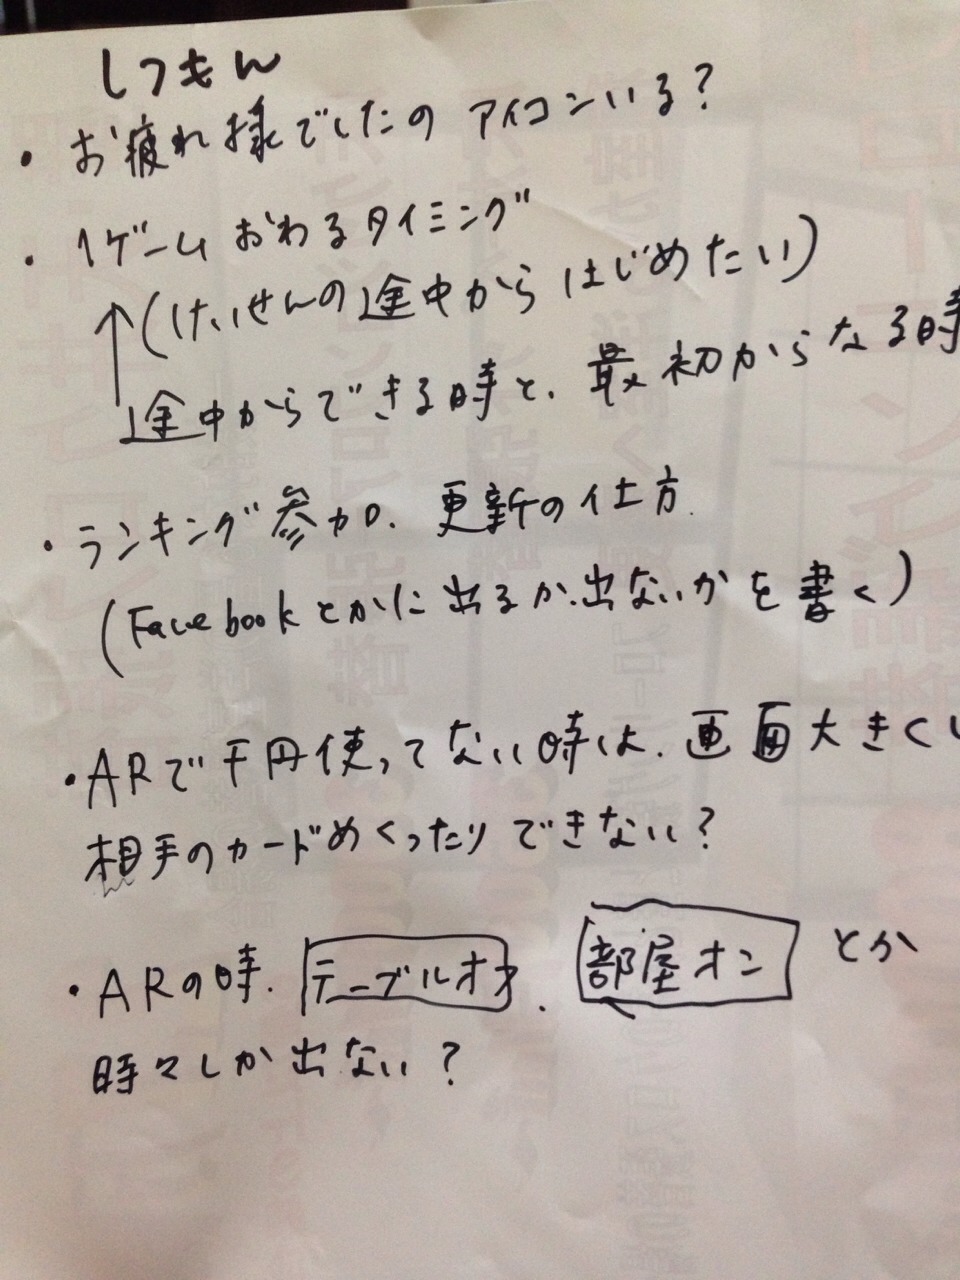 しつもん
・お疲れ様でしたの アイコンいる?
・1ゲーム おわるタイミング
↑(けいせんの途中から はじめたい)
途中からできる時と、最初からなる時
・ランキング参加、更新の仕方.
(Facebookとかに出るか出ないかを書く)
・ARで千円使ってない時は、画面大きくし
相手のカードめくったりできない?
・ARの時、テーブルオフ、部屋オン とか
時々しか出ない?